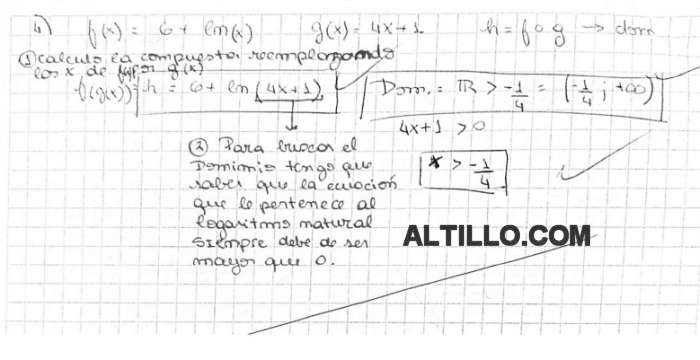 4) f(x) = 6 + ln(x) g(x) = 4x+1 h = f o g → dom
① calculo la compuesta reemplazando
los x de f(x) por g(x)
f(g(x)) = h = 6 + ln (4x+1)
Dom. = ℝ > -1/4 = (-1/4 ; +∞)
4x+1 > 0
x > -1/4
② Para buscar el
Dominio tengo que
saber que la ecuación
que le pertenece al
logaritmo natural
siempre debe de ser
mayor que 0.
ALTILLO.COM